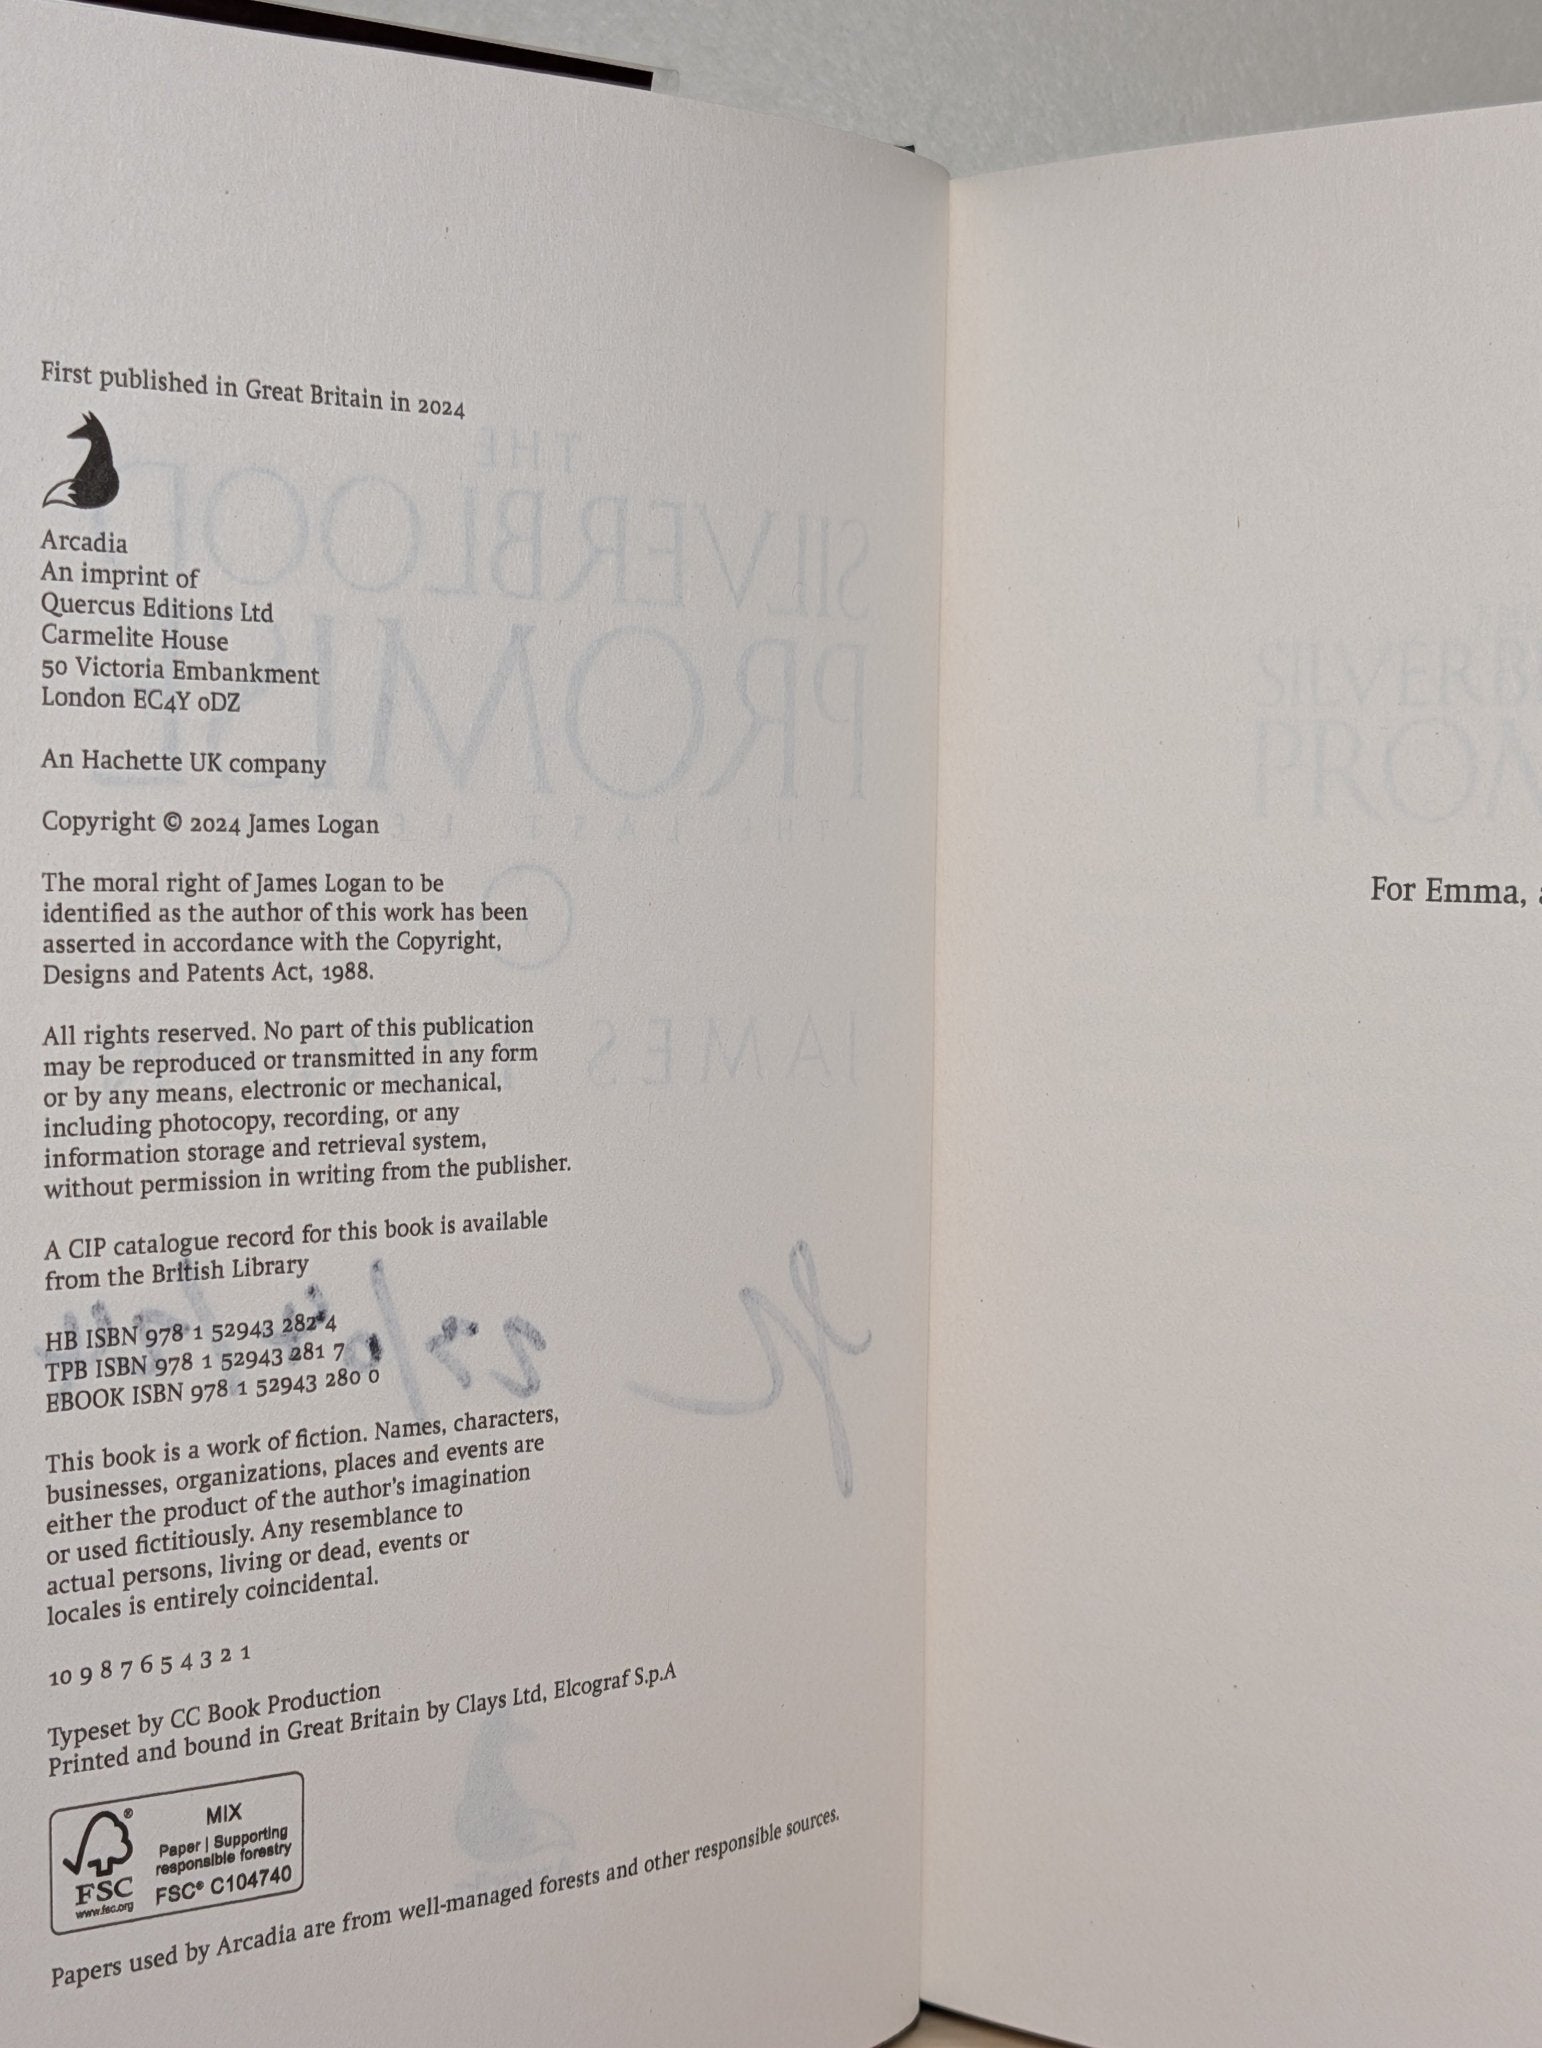 First published in Great Britain in 2024
Arcadia
An imprint of
Quercus Editions Ltd
Carmelite House
50 Victoria Embankment
London EC4Y 0DZ
An Hachette UK company
Copyright © 2024 James Logan
The moral right of James Logan to be
identified as the author of this work has been
asserted in accordance with the Copyright,
Designs and Patents Act, 1988.
All rights reserved. No part of this publication
may be reproduced or transmitted in any form
or by any means, electronic or mechanical,
including photocopy, recording, or any
information storage and retrieval system,
without permission in writing from the publisher.
A CIP catalogue record for this book is available
from the British Library
HB ISBN 978 1 52943 282 4
TPB ISBN 978 1 52943 281 7
EBOOK ISBN 978 1 52943 280 0
This book is a work of fiction. Names, characters,
businesses, organizations, places and events are
either the product of the author's imagination
or used fictitiously. Any resemblance to
actual persons, living or dead, events or
locales is entirely coincidental.
10 9 8 7 6 5 4 3 2 1
Typeset by CC Book Production
Printed and bound in Great Britain by Clays Ltd, Elcograf S.p.A
FSC
www.fsc.org
MIX
Paper | Supporting
responsible forestry
FSC® C104740
Papers used by Arcadia are from well-managed forests and other responsible sources.
THE
SILVERBLOOD
PROMISE
JAMES
SILVERB
PROM
For Emma, a